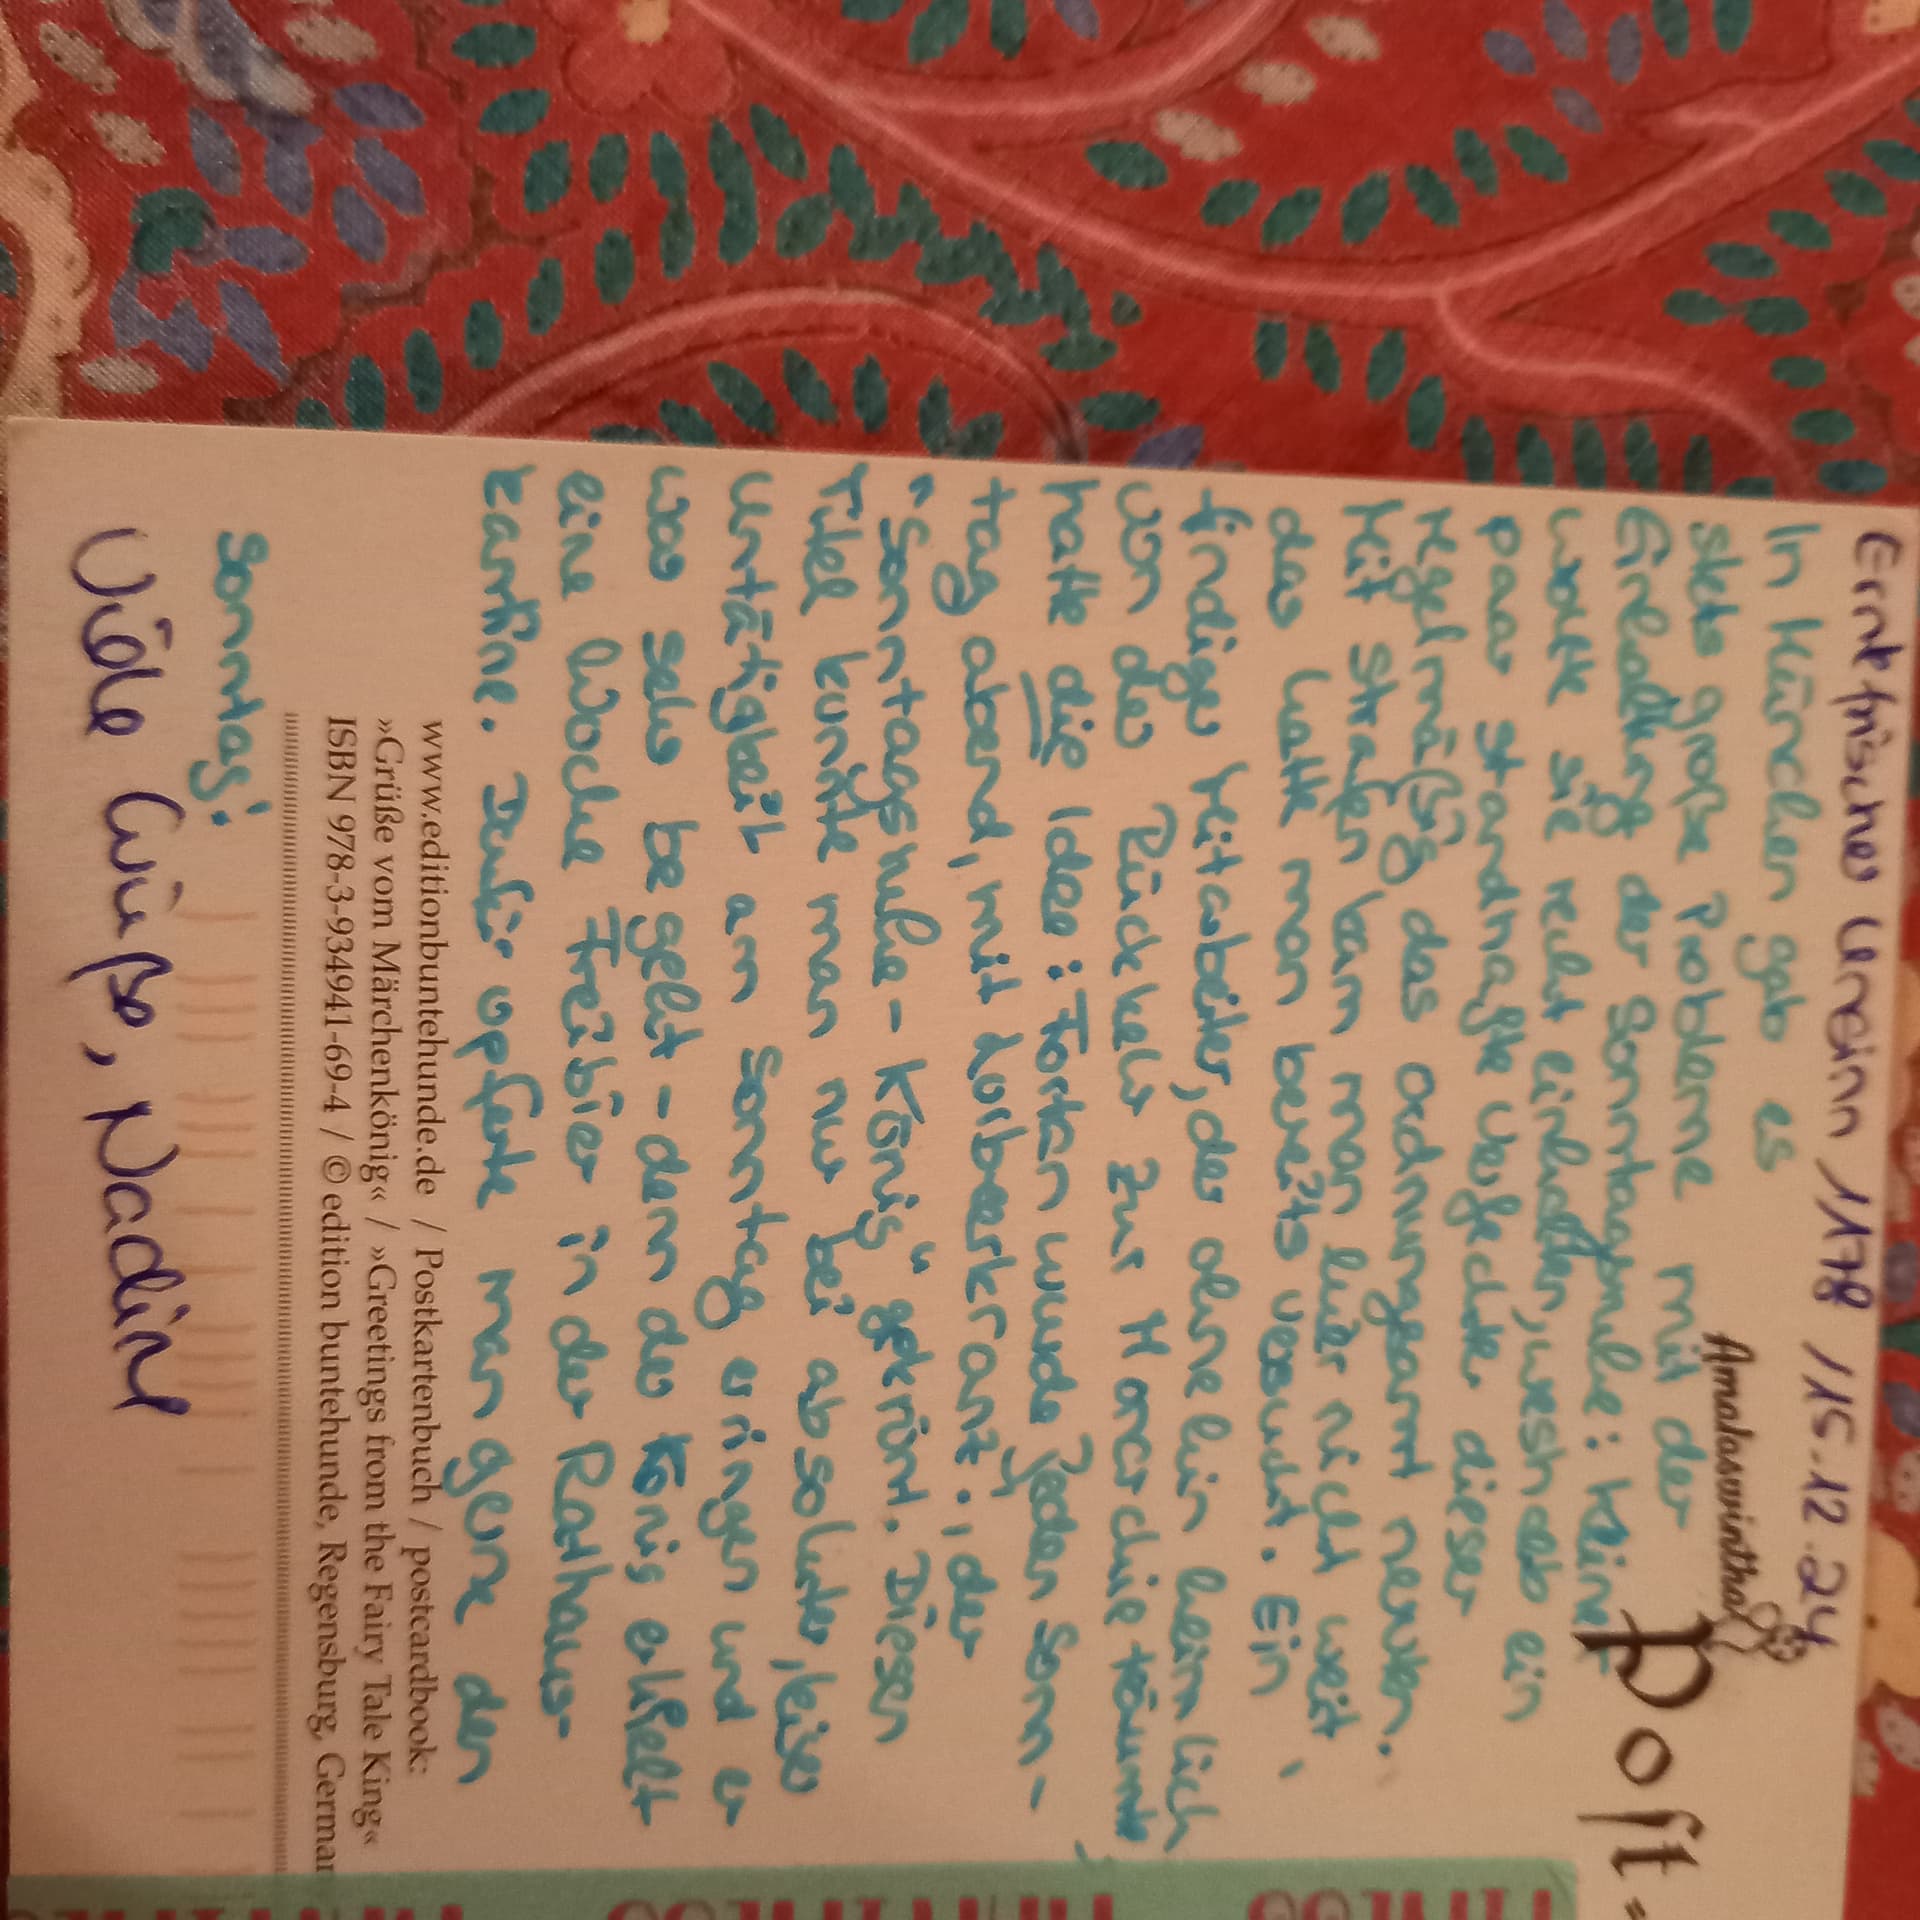 Erntefrischer Unsinn 1178 / 15.12.24
Amalaswintha
Post-
In München gab es
stets große Probleme mit der
Einhaltung der Sonntagsruhe: Keiner
wollte sie recht einhalten, weshalb ein
paar standhafte Verfechter dieser
regelmäßig das Ordnungsamt nerven.
Mit Strafen kam man hier nicht weit,
das hatte man bereits versucht. Ein
findiger Mitarbeiter, der ohnehin heimlich
von der Rückkehr zur Monarchie träumte,
hatte die Idee: Forten wurde jeden Sonn-
tag abend, mit Lorbeerkranz, der
"Sonntagsruhe-König" gekrönt. Diesen
Titel konnte man nur bei absoluter, leiser
Untätigkeit am Sonntag erringen und er
war sehr begehrt - denn der König erhielt
eine Woche Freibier in der Rathaus-
kantine. Dafür opferte man gerne den
Sonntag!
www.editionbuntehunde.de / Postkartenbuch / postcardbook:
»Grüße vom Märchenkönig« / »Greetings from the Fairy Tale King«
ISBN 978-3-934941-69-4 / © edition buntehunde, Regensburg, German
Viele Grüße, Nadine